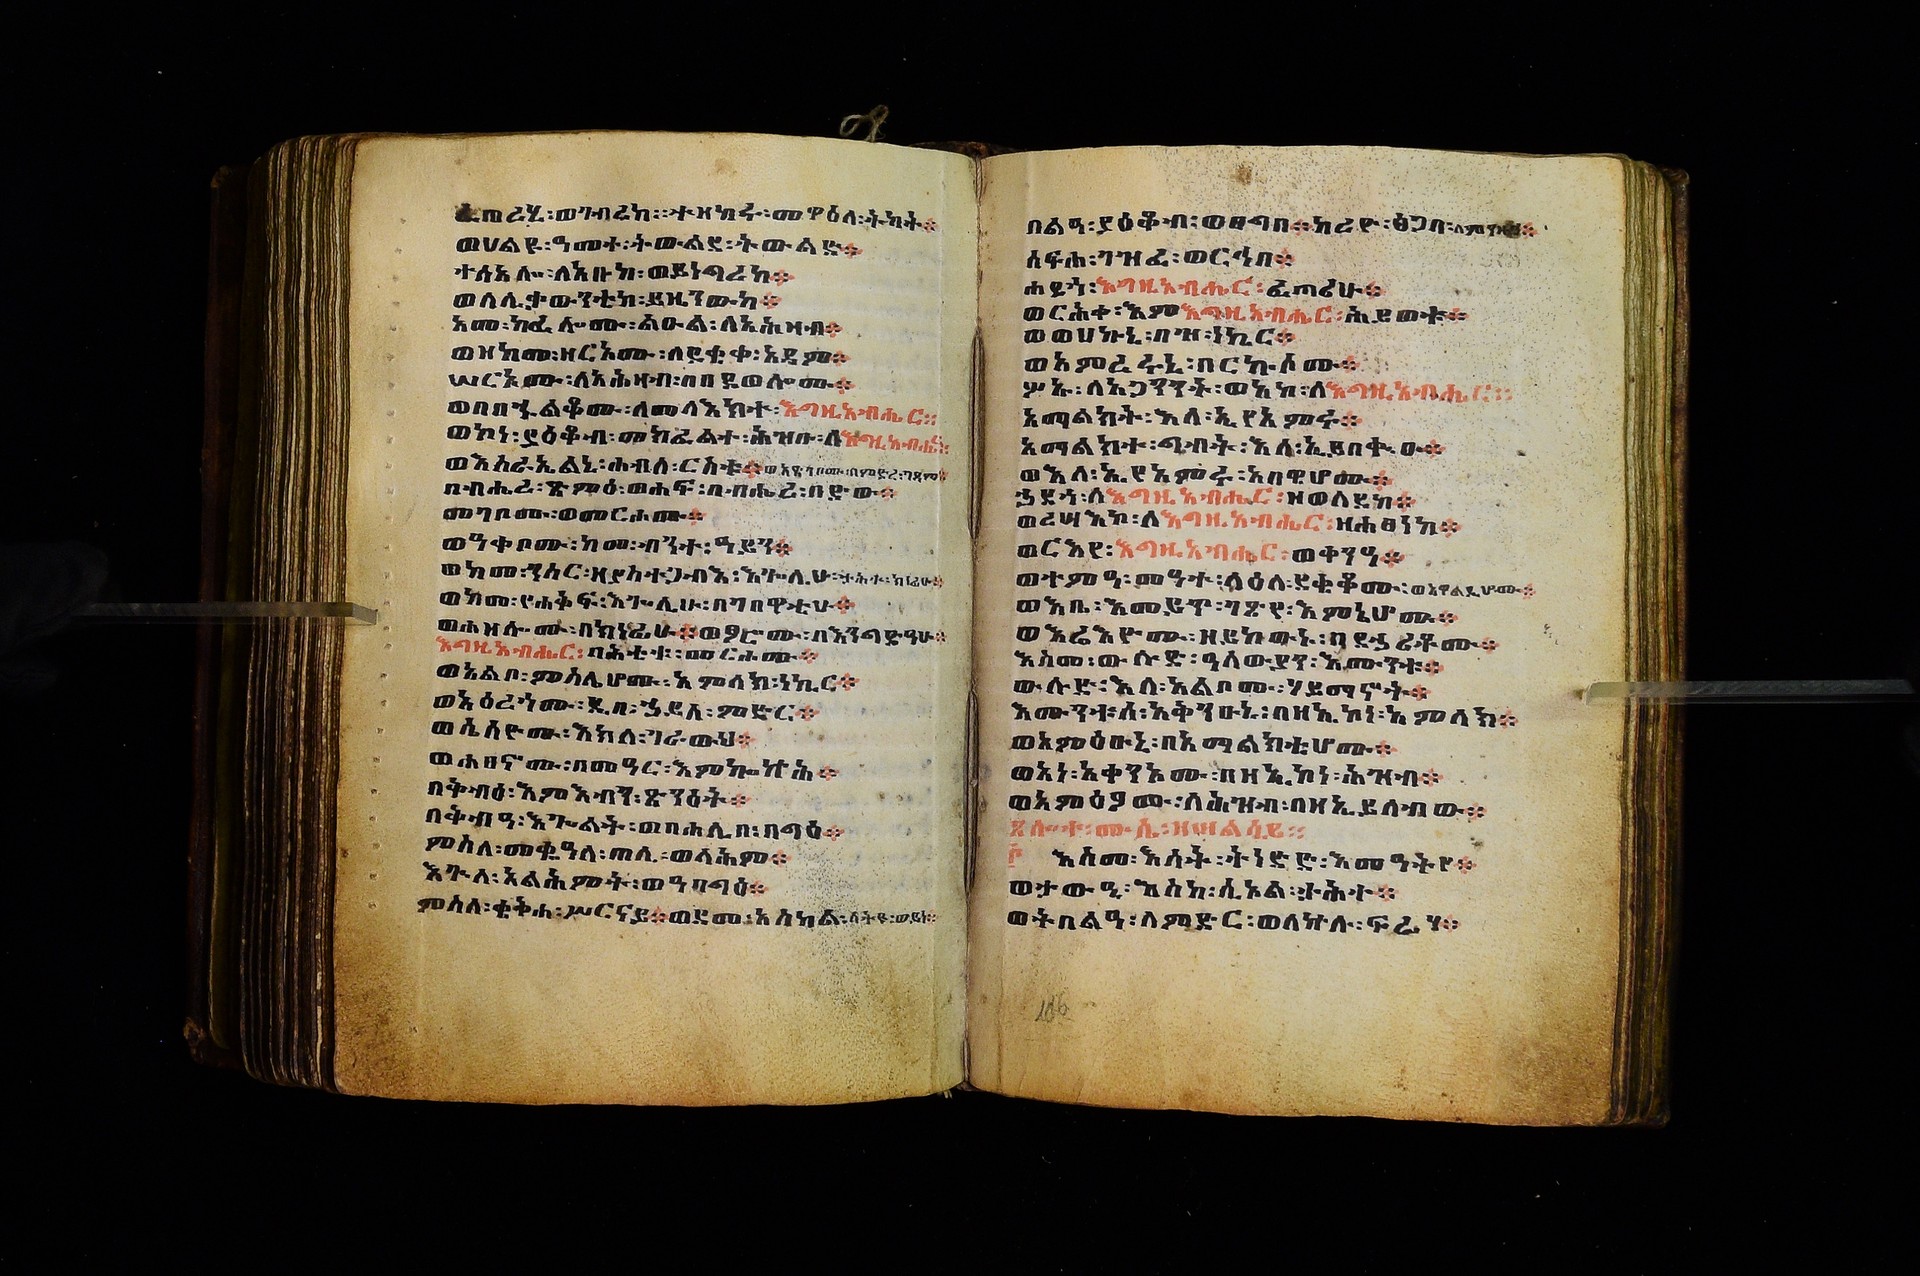 ፈጠረከ፡ወገብረከ፡፡ተዘከሩ፡መዋዕለ፡ትካት፨
ወሀልዩ፡ዓመተ፡ትውልደ፡ትውልድ፨
ተሰአሎ፡ለአቡከ፡ወይነግረከ፨
ወለሊቃውንቲከ፡ይዜንዉከ፨
አመ፡ከፈሎሙ፡ልዑል፡ለአሕዛብ፨
ወዘከመ፡ዘርአሙ፡ለደቂቀ፡አዳም፨
ሠርአሙ፡ለአሕዛብ፡በበደወሎሙ፨
ወበበኍልቆሙ፡ለመላእክተ፡እግዚአብሔር፡፡
ወኮነ፡ያዕቆብ፡መክፈልተ፡ሕዝቡ፡ለእግዚአብሔር፡፡
ወእስራኤልኒ፡ሐብለ፡ርስቱ፨
በብሔረ፡ጽምዕ፡ወሐፍ፡በብሔረ፡በድው፨
መገቦሙ፡ወመርሐሙ፨
ወዓቀቦሙ፡ከመ፡ብንተ፡ዓይን፨
ወከመ፡ንስር፡ዘያስተጋብእ፡እጐሊሁ፡ታሕተ፡ክነፊሁ፨
ወከመ፡የሐቅፍ፡እጐሊሁ፡በገበዋቲሁ፨
ወሐዘሎሙ፡በክነፊሁ፨ወፆሮሙ፡በእንግድዓሁ፨
እግዚአብሔር፡ባሕቲቱ፡መርሖሙ፨
ወአልቦ፡ምስሌሆሙ፡አምላክ፡ነኪር፨
ወአዕረጎሙ፡ዲበ፡ኃይለ፡ምድር፨
ወሴሰዮሙ፡እክለ፡ገራውህ፨
ወሐፀኖሙ፡በመዓር፡እምኰኵሕ፨
በቅብዕ፡እምእብን፡ጽንዕት፨
በቅብዓ፡እጐልት፡ወበሐሊበ፡በግዕ፨
ምስለ፡መቍዓለ፡ጠሊ፡ወላሕም፨
እጕለ፡አልሕምት፡ወዓባግዕ፨
ምስለ፡ቄቅሐ፡ሥርናይ፨ወደመ፡አስካል፡ሰትዩ፡ወይነ፡፡
በልዓ፡ያዕቆብ፡ወፀግበ፨
ሰፍሐ፡ገዝፈ፡ወርኅበ፨
ሐደጎ፡እግዚአብሔር፡ፈጣሪሁ፨
ወርሕቀ፡እምእግዚአብሔር፡ሕይወቱ፨
ወወሀኩኒ፡በዝ፡ነኪር፨
ወአምረሩኒ፡በርኩሶሙ፨
ሦኡ፡ለአጋንንት፡ወአኮ፡ለእግዚአብሔር፡፡
አማልክት፡እለ፡ኢየአምሩ፨
አማልክተ፡ግብት፡እለ፡ኢይበቍዑ፨
ወእለ፡ኢየአምሩ፡አበዊሆሙ፨
ኃደጎ፡ለእግዚአብሔር፡ዘወለደከ፨
ወረሣእኮ፡ለእግዚአብሔር፡ዘሐፀነከ፨
ወርእየ፡እግዚአብሔር፡ወቀንዓ፨
ወተምዓ፡መዓተ፡ላዕለ፡ደቂቆሙ፡ወአዋልዲሆሙ፨
ወእቤ፡እመይጥ፡ገጽየ፡እምኔሆሙ፨
ወእሬእዮሙ፡ዘይከውኑ፡በደኃሪቶሙ፨
እስመ፡ውሉድ፡ዓለውያን፡እሙንቱ፨
ውሉድ፡እለ፡አልቦሙ፡ሃይማኖት፨
እሙንቱሰ፡አቅንዑኒ፡በዘኢኮነ፡አምላክ፨
ወአምዕዑኒ፡በአማልክቲሆሙ፨
ወአነ፡አቀንኦሙ፡በዘኢኮነ፡ሕዝብ፨
ወአምዕዖሙ፡ለሕዝብ፡በዘኢይለብው፨
ጸሎተ፡ሙሴ፡ዘሣልሳይ፡፡
፫ እስመ፡እሳት፡ትነድድ፡እመዓትየ፨
ወታውዒ፡እስከ፡ሲኦል፡ታሕተ፨
ወትበልዓ፡ለምድር፡ወለኵሉ፡ፍሬሃ፨
106